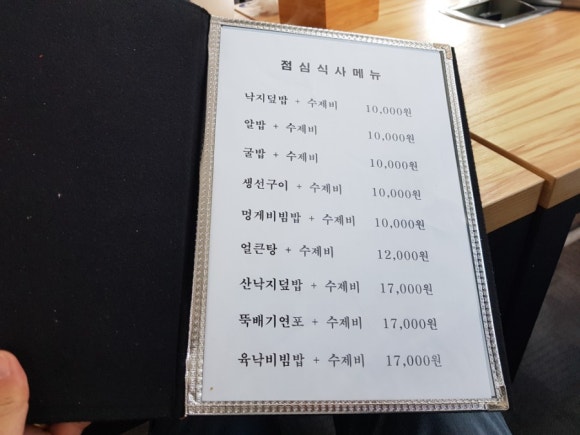 점심식사메뉴
낙지덮밥 + 수제비 10,000원
알밥 + 수제비 10,000원
굴밥 + 수제비 10,000원
생선구이 + 수제비 10,000원
멍게비빔밥 + 수제비 10,000원
얼큰탕 + 수제비 12,000원
산낙지덮밥 + 수제비 17,000원
뚝배기연포 + 수제비 17,000원
육낙비빔밥 + 수제비 17,000원